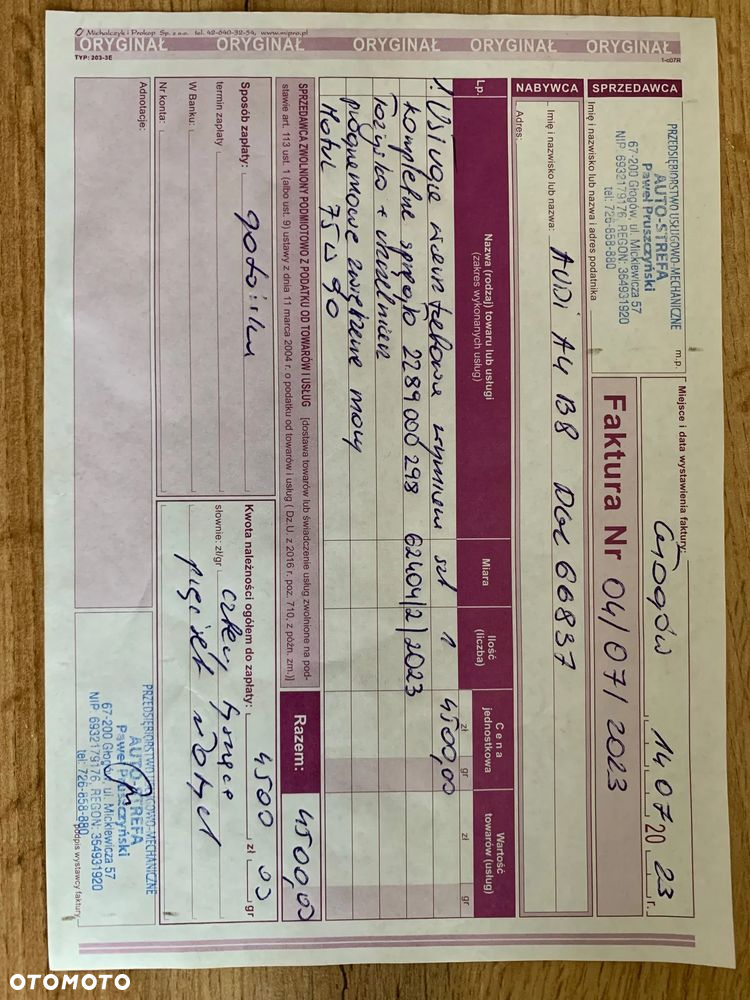 Michalczyk i Prokop Sp. z o.o. tel. 42-640-32-54, www.mipro.pl
ORYGINAŁ ORYGINAŁ ORYGINAŁ ORYGINAŁ ORYGINAŁ
TYP: 203-3E
1-c07R
SPRZEDAWCA
PRZEDSIĘBIORSTWO USŁUGOWO-MECHANICZNE
AUTO-STREFA
Paweł Pruszczyński
67-200 Głogów, ul. Mickiewicza 57
NIP 6932179176, REGON: 364931920
tel: 726-858-880
m.p.
Imię i nazwisko lub nazwa i adres podatnika
Miejsce i data wystawienia faktury:
Głogów 14 07 2023 r.
Faktura Nr 04/07/2023
NABYWCA
Imię i nazwisko lub nazwa: AUDI A4 B8 DGL 66837
Adres:
Lp.
Nazwa (rodzaj) towaru lub usługi
(zakres wykonanych usług)
Miara
Ilość
(liczba)
Cena
jednostkowa
zł gr
Wartość
towarów (usług)
zł gr
1 Usługa wymiana szt 1 4500,00
kompletne sprzęgło 2289000298 62404/2/2023
łożysko +
Motul 75W90
SPRZEDAWCA ZWOLNIONY PODMIOTOWO Z PODATKU OD TOWARÓW I USŁUG [dostawa towarów lub świadczenie usług zwolnione na pod-
stawie art. 113 ust. 1 (albo ust. 9) ustawy z dnia 11 marca 2004 r. o podatku od towarów i usług ( Dz.U. z 2016 r. poz. 710, z późn. zm.)]
Razem: 4500,00
Sposób zapłaty: gotówka
termin zapłaty
W Banku:
Nr konta:
Kwota należności ogółem do zapłaty: 4500 zł 00 gr
słownie: zł/gr cztery tysiące
pięćset złotych
Adnotacje:
PRZEDSIĘBIORSTWO USŁUGOWO-MECHANICZNE
AUTO-STREFA
Paweł Pruszczyński
67-200 Głogów, ul. Mickiewicza 57
NIP 6932179176, REGON: 364931920
tel: 726-858-880
podpis wystawcy faktury
OTOMOTO